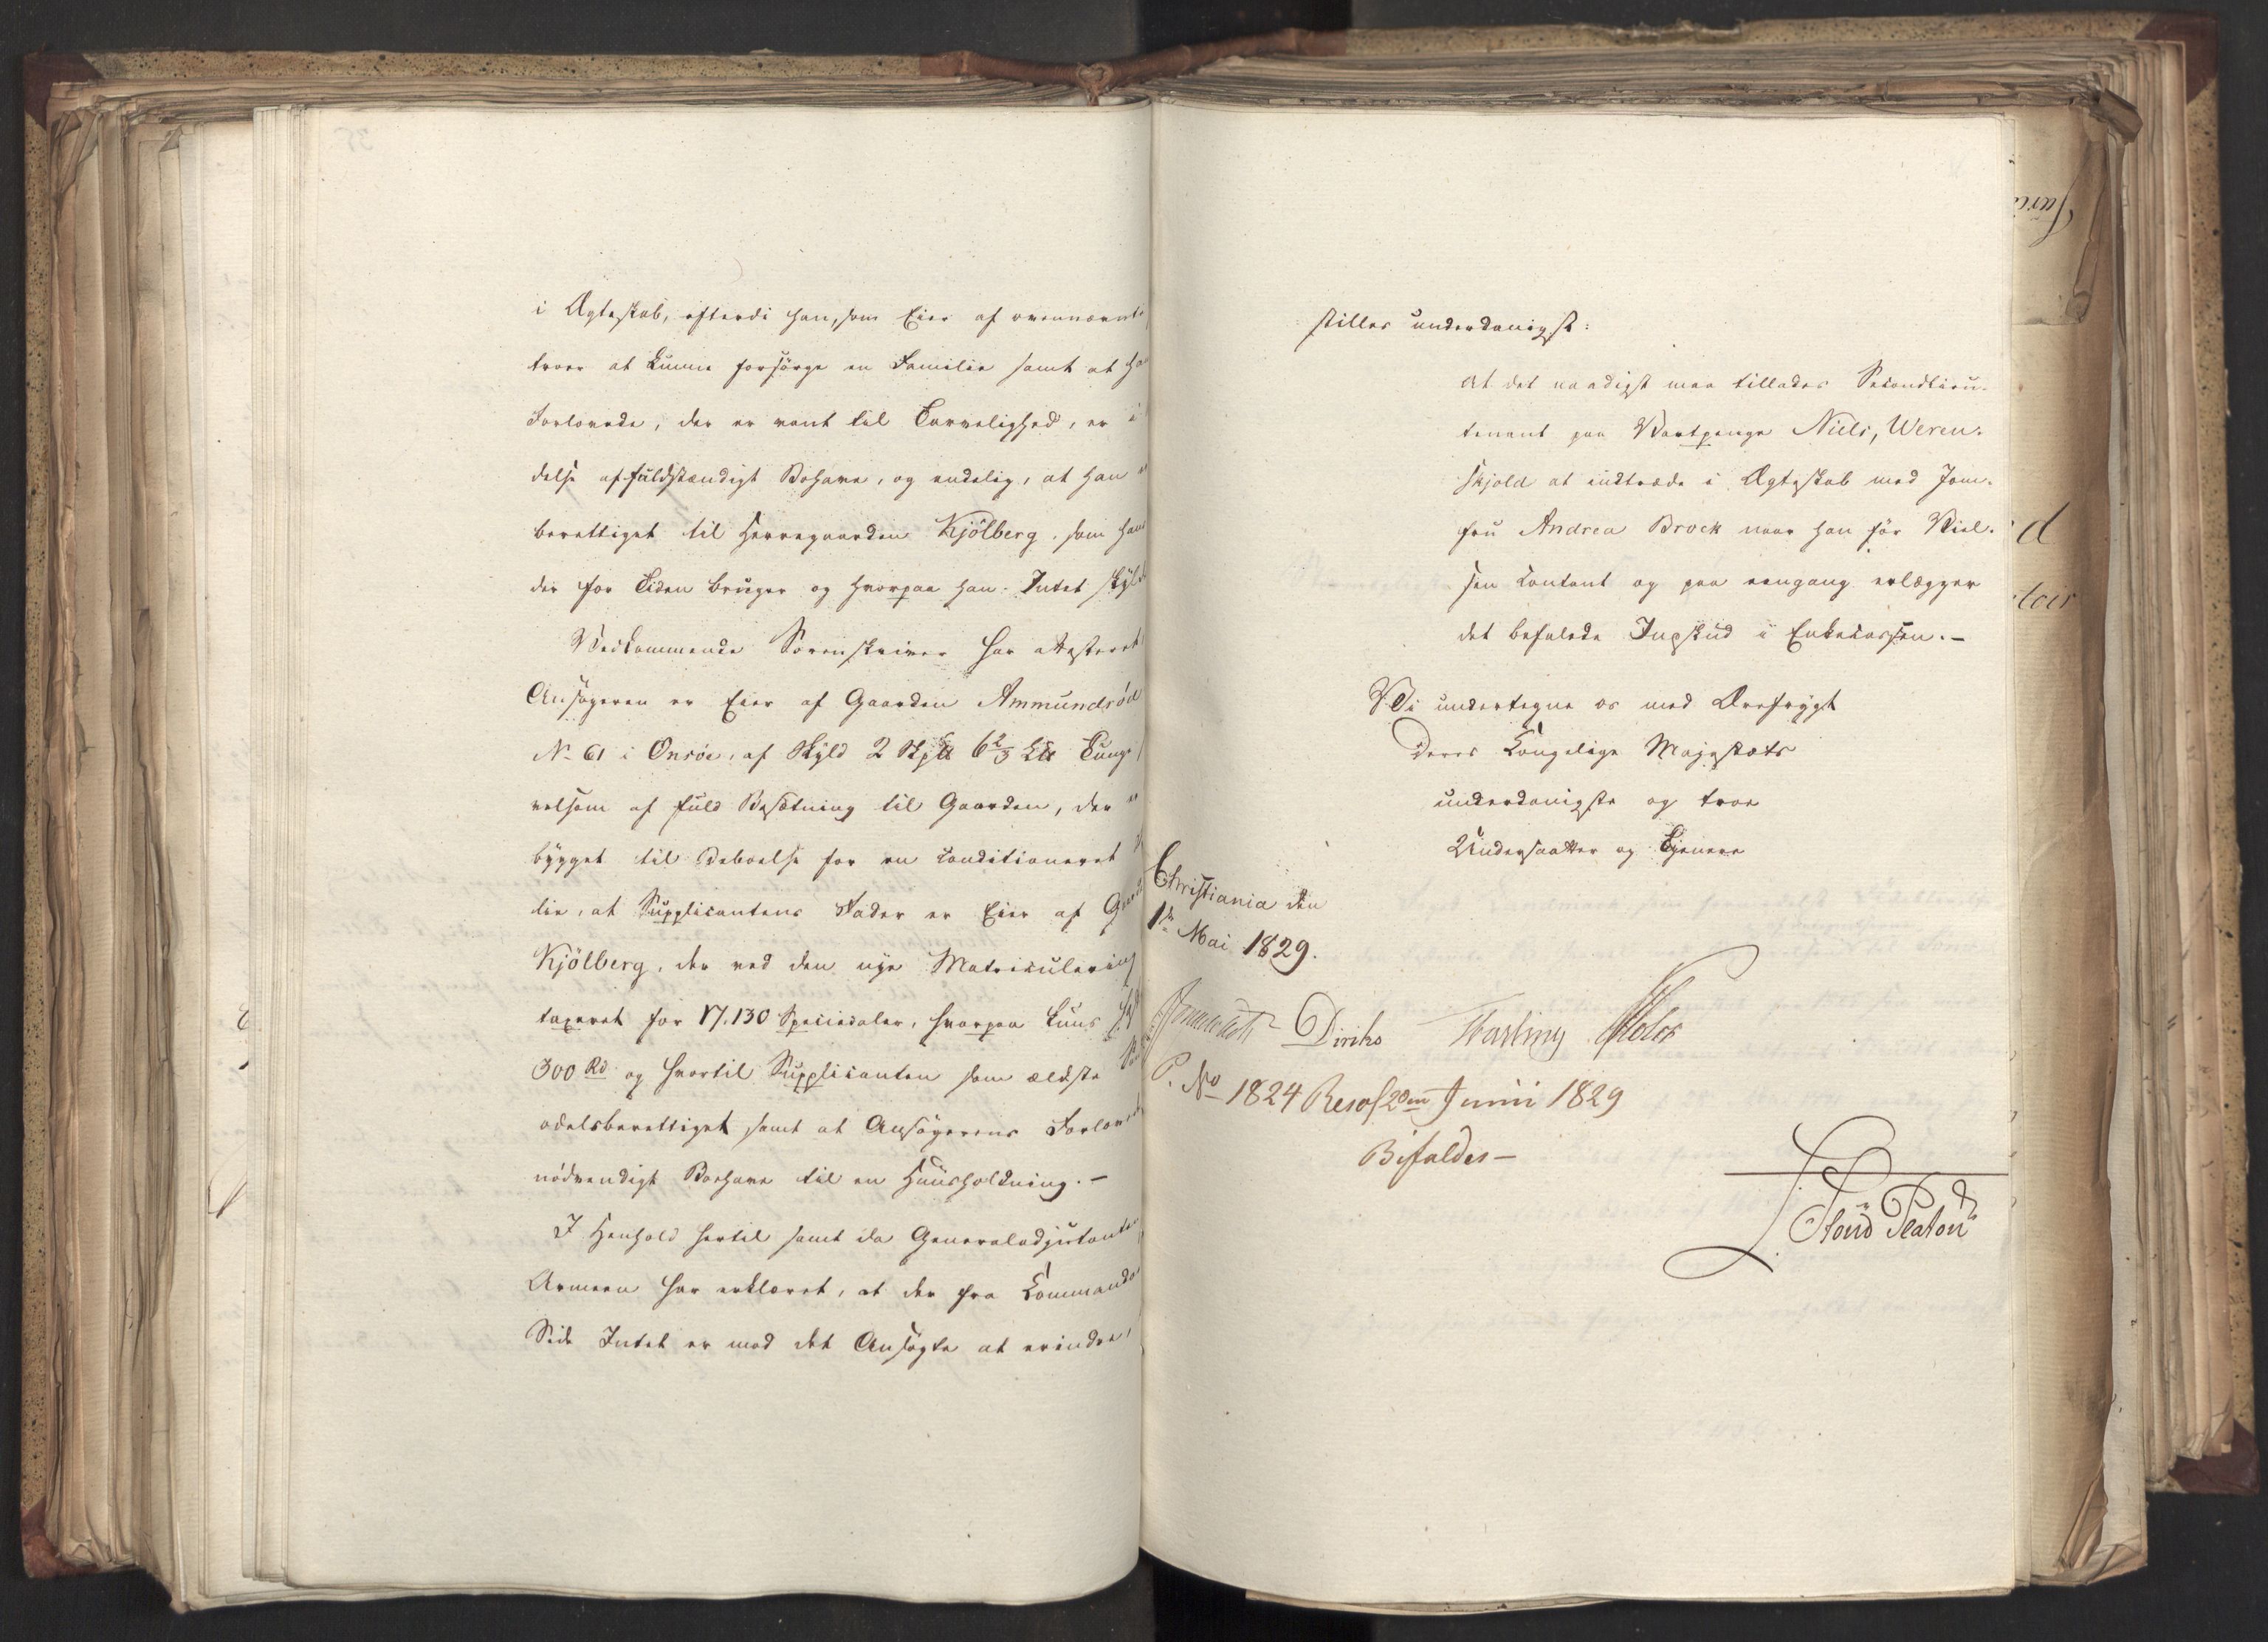 i Ægteskab, efterdi han, som Eier af ovennævnte
troer at kunne forsörge en Familie samt at ha
Forlovede, der er vant til Tarvelighed, er i
delse af fuldstændigt Bohave, og endelig, at han
berettiget til Herregaarden Kjölberg, som han
der for Tiden bruger og hvorpaa han Intet skyld
Vedkommende Sorenskriver har attesteret
Ansögeren er Eier af Gaarden Ammundröd
No 61 i Onsöe, af Skyld 2 Skp 6 2/3 Tunge
velsom af fuld Besætning til Gaarden, der
bygget til Beboelse for en conditioneret
lie, at Supplicantens Fader er Eier af Gaard
Kjölberg, der ved den nye Matriculering
taxeret for 17.130 Speciedaler, hvorpaa kuns
300 Rd og hvortil Supplicanten som ældste
odelsberettiget samt at Ansögerens Forlovede
nödvendigt Boehave til en Huusholdning.-
I Henhold hertil samt da Generaladjutanten
Armeen har erklæret, at der fra Commando
Side Intet er mod det Ansögte at erindre,
stilles underdanigst:
At det naadigst maa tillades Secondlieu-
tenant paa Vartpenge Niels, Weren-
skjold at indtræde i Ægteskab med Jom-
fru Andrea Brock naar han för Viel-
sen contant og paa eengang erlægger
det befalede Inpskud i Enkecassen.-
Vi undertegne os med Ærefrygt
Deres Kongelige Majestæts
underdanigste og troe
Undersaatter og Tjenere
Christiania den
1ste Mai 1829.
Diriks Fasting Holst
P. No 1824 Resol 2den Junii 1829
Bifaldes-
Platou